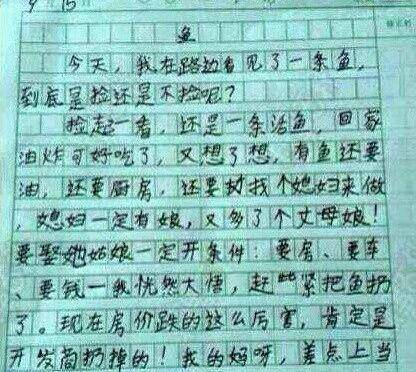 9 15
鱼
今天，我在路边看见了一条鱼，
到底是捡还是不捡呢？
捡起一看，还是一条活鱼，回家
油炸可好吃了，又想了想，有鱼还要
油，还要厨房，还要找个媳妇来做
，媳妇一定有娘，又多了个丈母娘！
要娶她姑娘一定开条件：要房、要车
、要钱一我恍然大悟，赶紧把鱼扔
了。现在房价跌的这么厉害，肯定是
开发商扔掉的！我的妈呀，差点上当